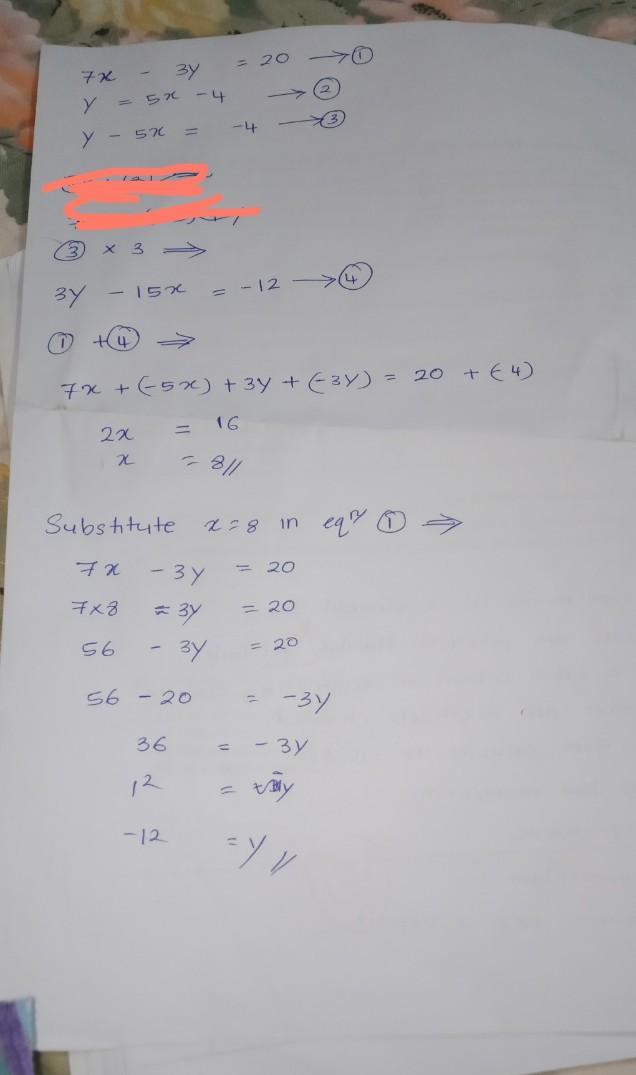 7x - 3y = 20 → ①
y = 5x - 4 → ②
y - 5x = -4 → ③
③ × 3 ⇒
3y - 15x = -12 → ④
① + ④ ⇒
7x + (-5x) + 3y + (-3y) = 20 + (-4)
2x = 16
x = 8//
Substitute x = 8 in eqn ① ⇒
7x - 3y = 20
7×8 - 3y = 20
56 - 3y = 20
56 - 20 = -3y
36 = -3y
12 = y
-12 = y//